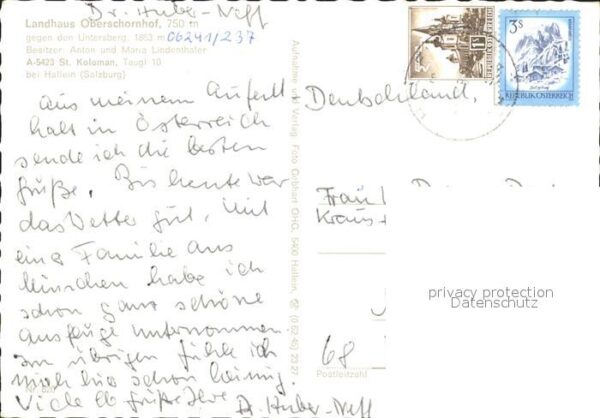 Dr. Huber-Neff
Landhaus Oberschornhof, 750 m
gegen den Untersberg, 1853 m
06241/237
Besitzer: Anton und Maria Lindenthaler
A-5423 St. Koloman, Taugl 10
bei Hallein (Salzburg)
aus meinem Aufent
halt in Österreich
sende ich die besten
Grüße. Bis heute war
das Wetter gut. Mit
einer Familie aus
München habe ich
schon ganz schöne
Ausflüge unternommen.
Im übrigen fühle ich
mich hier schon heimig.
Viele lb Grüße Ihre
A. Huber-Neff
Aufnahme und Verlag: Foto Gebhart OHG, 5400 Hallein, (0 62 40) 23 27
REPUBLIK ÖSTERREICH
3S
REPUBLIK ÖSTERREICH
Deutschland,
Frau
Kraus
68
Postleitzahl
privacy protection
Datenschutz